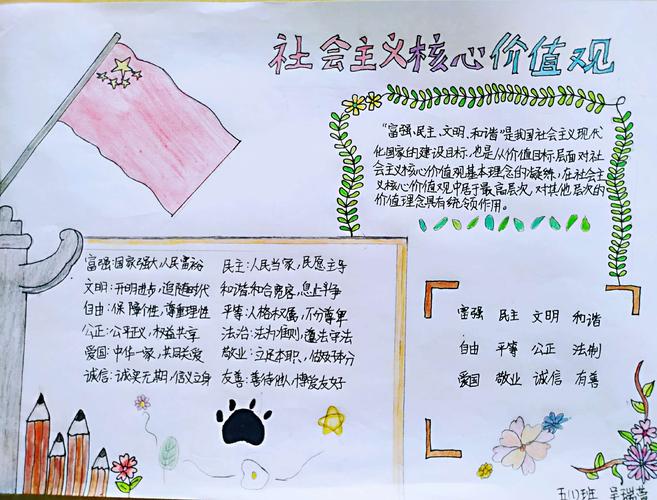 社会主义核心价值观
“富强、民主、文明、和谐”是我国社会主义现代
化国家的建设目标,也是从价值目标层面对社
会主义核心价值观基本理念的凝练,在社会主
义核心价值观中居于最高层次,对其他层次的
价值理念具有统领作用。
富强:国家强大,人民富裕 民主:人民当家,民愿主导
文明:开明进步,追随时代 和谐:和合宽容,息止斗争
自由:保障个性,尊重理性 平等:人格权属,不分尊卑
公正:公平正义,权益共享 法治:法为准则,遵法守法
爱国:中华一家,共同关爱 敬业:立足本职,做好本分
诚信:诚实无期,信义立身 友善:善待他人,博爱友好
富强 民主 文明 和谐
自由 平等 公正 法制
爱国 敬业 诚信 有善
五(1)班 吴瑞